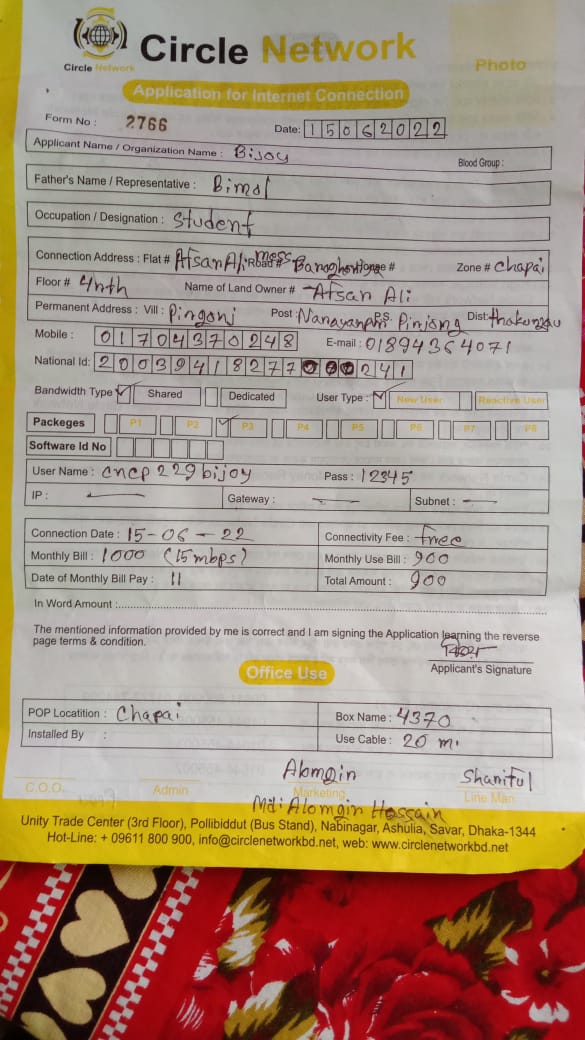 Circle Network
Circle Network
Photo
Application for Internet Connection
Form No : 2766
Date: 15062022
Applicant Name / Organization Name : Bijoy
Blood Group :
Father's Name / Representative : Bimol
Occupation / Designation : Student
Connection Address : Flat # Afsan Ali mess Road # House # Zone # Chapai
Floor # 4nth Name of Land Owner # Afsan Ali
Permanent Address : Vill : Pirgonj Post : P.S. Dist:
Mobile : 01704370248 E-mail : 01894364071
National Id: 20039418277000241
Bandwidth Type Shared Dedicated User Type : New User Reactive User
Packeges P1 P2 P3 P4 P5 P6 P7 P8
Software Id No
User Name : cncp229bijoy Pass : 12345
IP : Gateway : Subnet :
Connection Date : 15-06-22 Connectivity Fee : Free
Monthly Bill : 1000 (15mbps) Monthly Use Bill : 900
Date of Monthly Bill Pay : 11 Total Amount : 900
In Word Amount :
The mentioned information provided by me is correct and I am signing the Application learning the reverse
page terms & condition.
Applicant's Signature
Office Use
POP Locatition : Chapai Box Name : 4370
Installed By : Use Cable : 20 m.
Alomgin Shariful
C.O.O. Admin Marketing Line Man
Md: Alomgin Hossain
Unity Trade Center (3rd Floor), Pollibiddut (Bus Stand), Nabinagar, Ashulia, Savar, Dhaka-1344
Hot-Line: + 09611 800 900, info@circlenetworkbd.net, web: www.circlenetworkbd.net